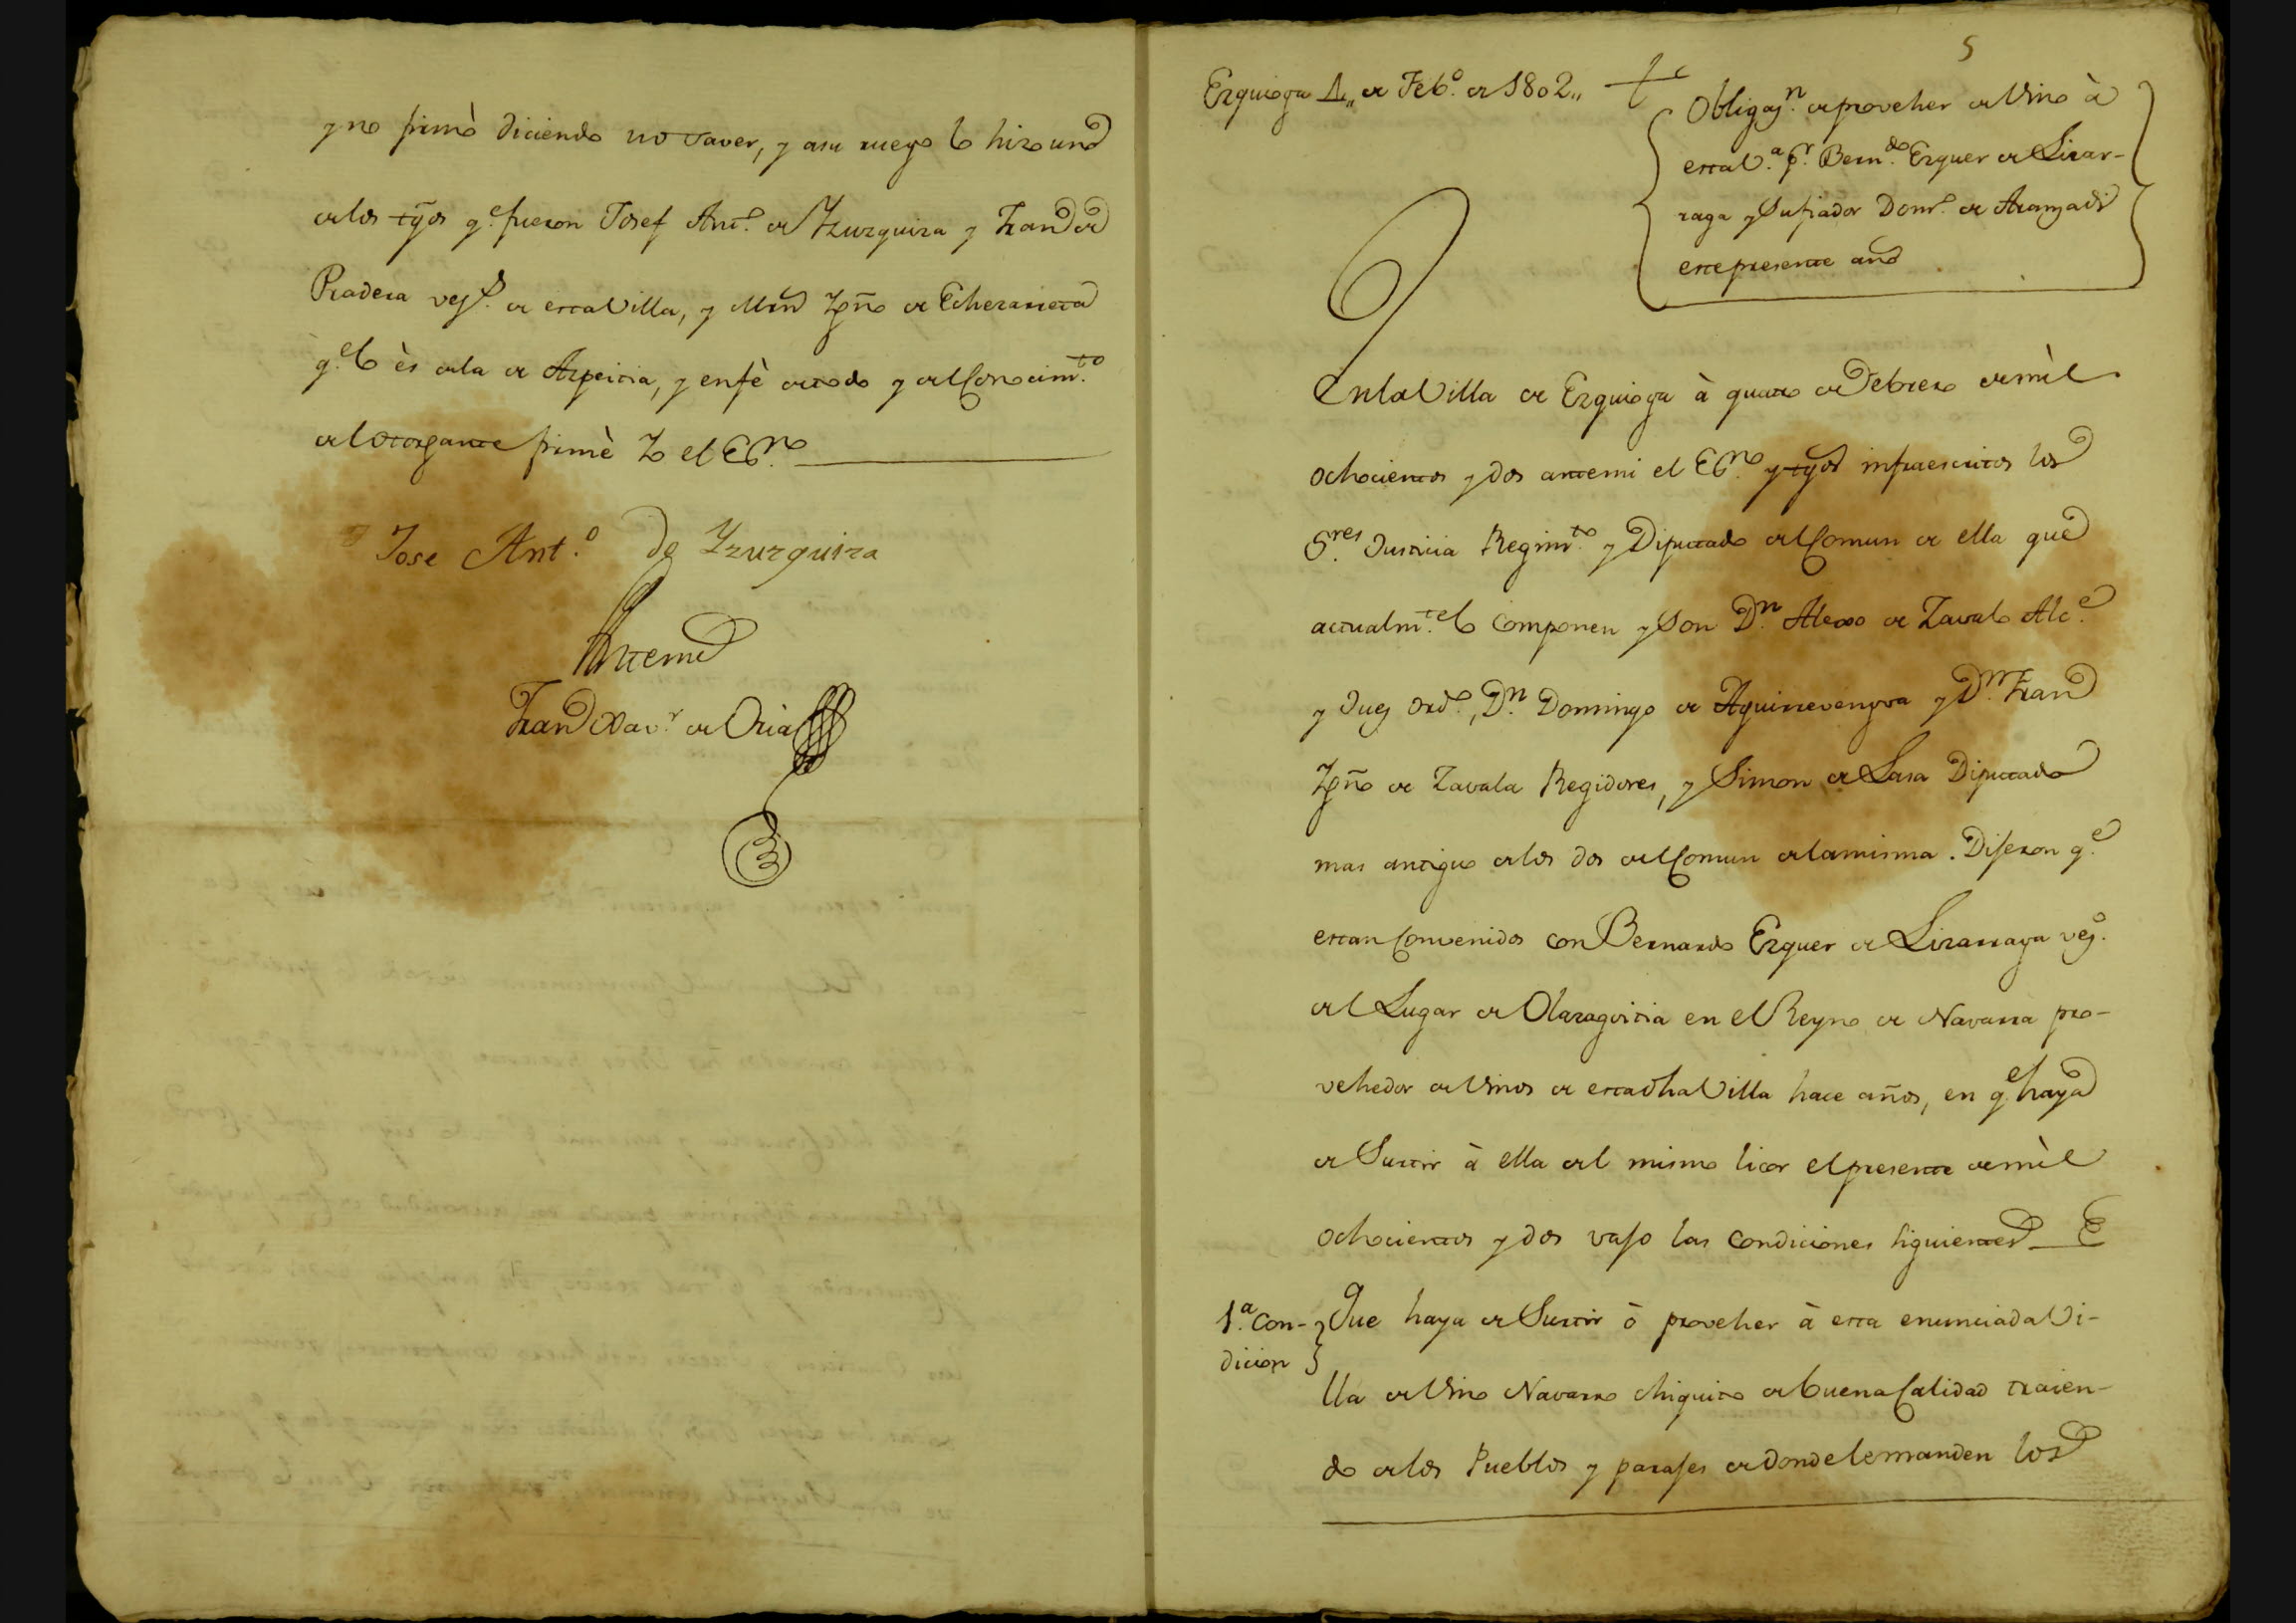 y no firmò diciendo no saver, y asu ruego lo hizo uno
de los tgõs q.e fueron Josef Ant.o de Yzurquiza y Fran.co de
Pradera vez.s de esta Villa, y Mrn Ygño de Echezarreta
q.e lo ès de la de Azpeitia, y en fè de todo y del Conocim.to
del otorgante firmè Yo el Es.no
Jose Ant.o De Yzurquiza
Antemi
Fran.co Xav.r de Oria
5
Ezquioga 4,, de Feb.o de 1802,,
Obligaz.n de proveher de Vino à
esta V.a p.r Bern.do Ezquer de Lizar-
raga y Su fiador Dom.o de Aranzadi
este presente año
En la Villa de Ezquioga à quatro de Febrero de mìl
ochocientos y dos antemi el Es.no y tgõs infraescritos los
S.res Justicia Regim.to y Diputado del Comun de ella que
actualm.te lo componen y Son D.n Alexo de Zavalo Alc.e
y Juez Ord.o, D.n Domingo de Aguirrevengoa y D.n Fran.co
Ygño de Zavala Regidores, y Simon de Lasa Diputado
mas antiguo de los dos del Comun de la misma. Dijeron q.e
estan Convenidos con Bernardo Ezquer de Lizarraga vez.o
del Lugar de Olazagoitia en el Reyno de Navarra pro-
vehedor de Vinos de esta dha Villa hace años, en q.e haya
de Surtir à ella del mismo licor el presente de mìl
ochocientos y dos vajo las condiciones siguientes
1.a Con-
dicion
Que haya de Surtir ò proveher à esta enunciada Vi-
lla de Vino Navarro chiquito de buena Calidad traien-
do de los Pueblos y parajes de donde le manden los